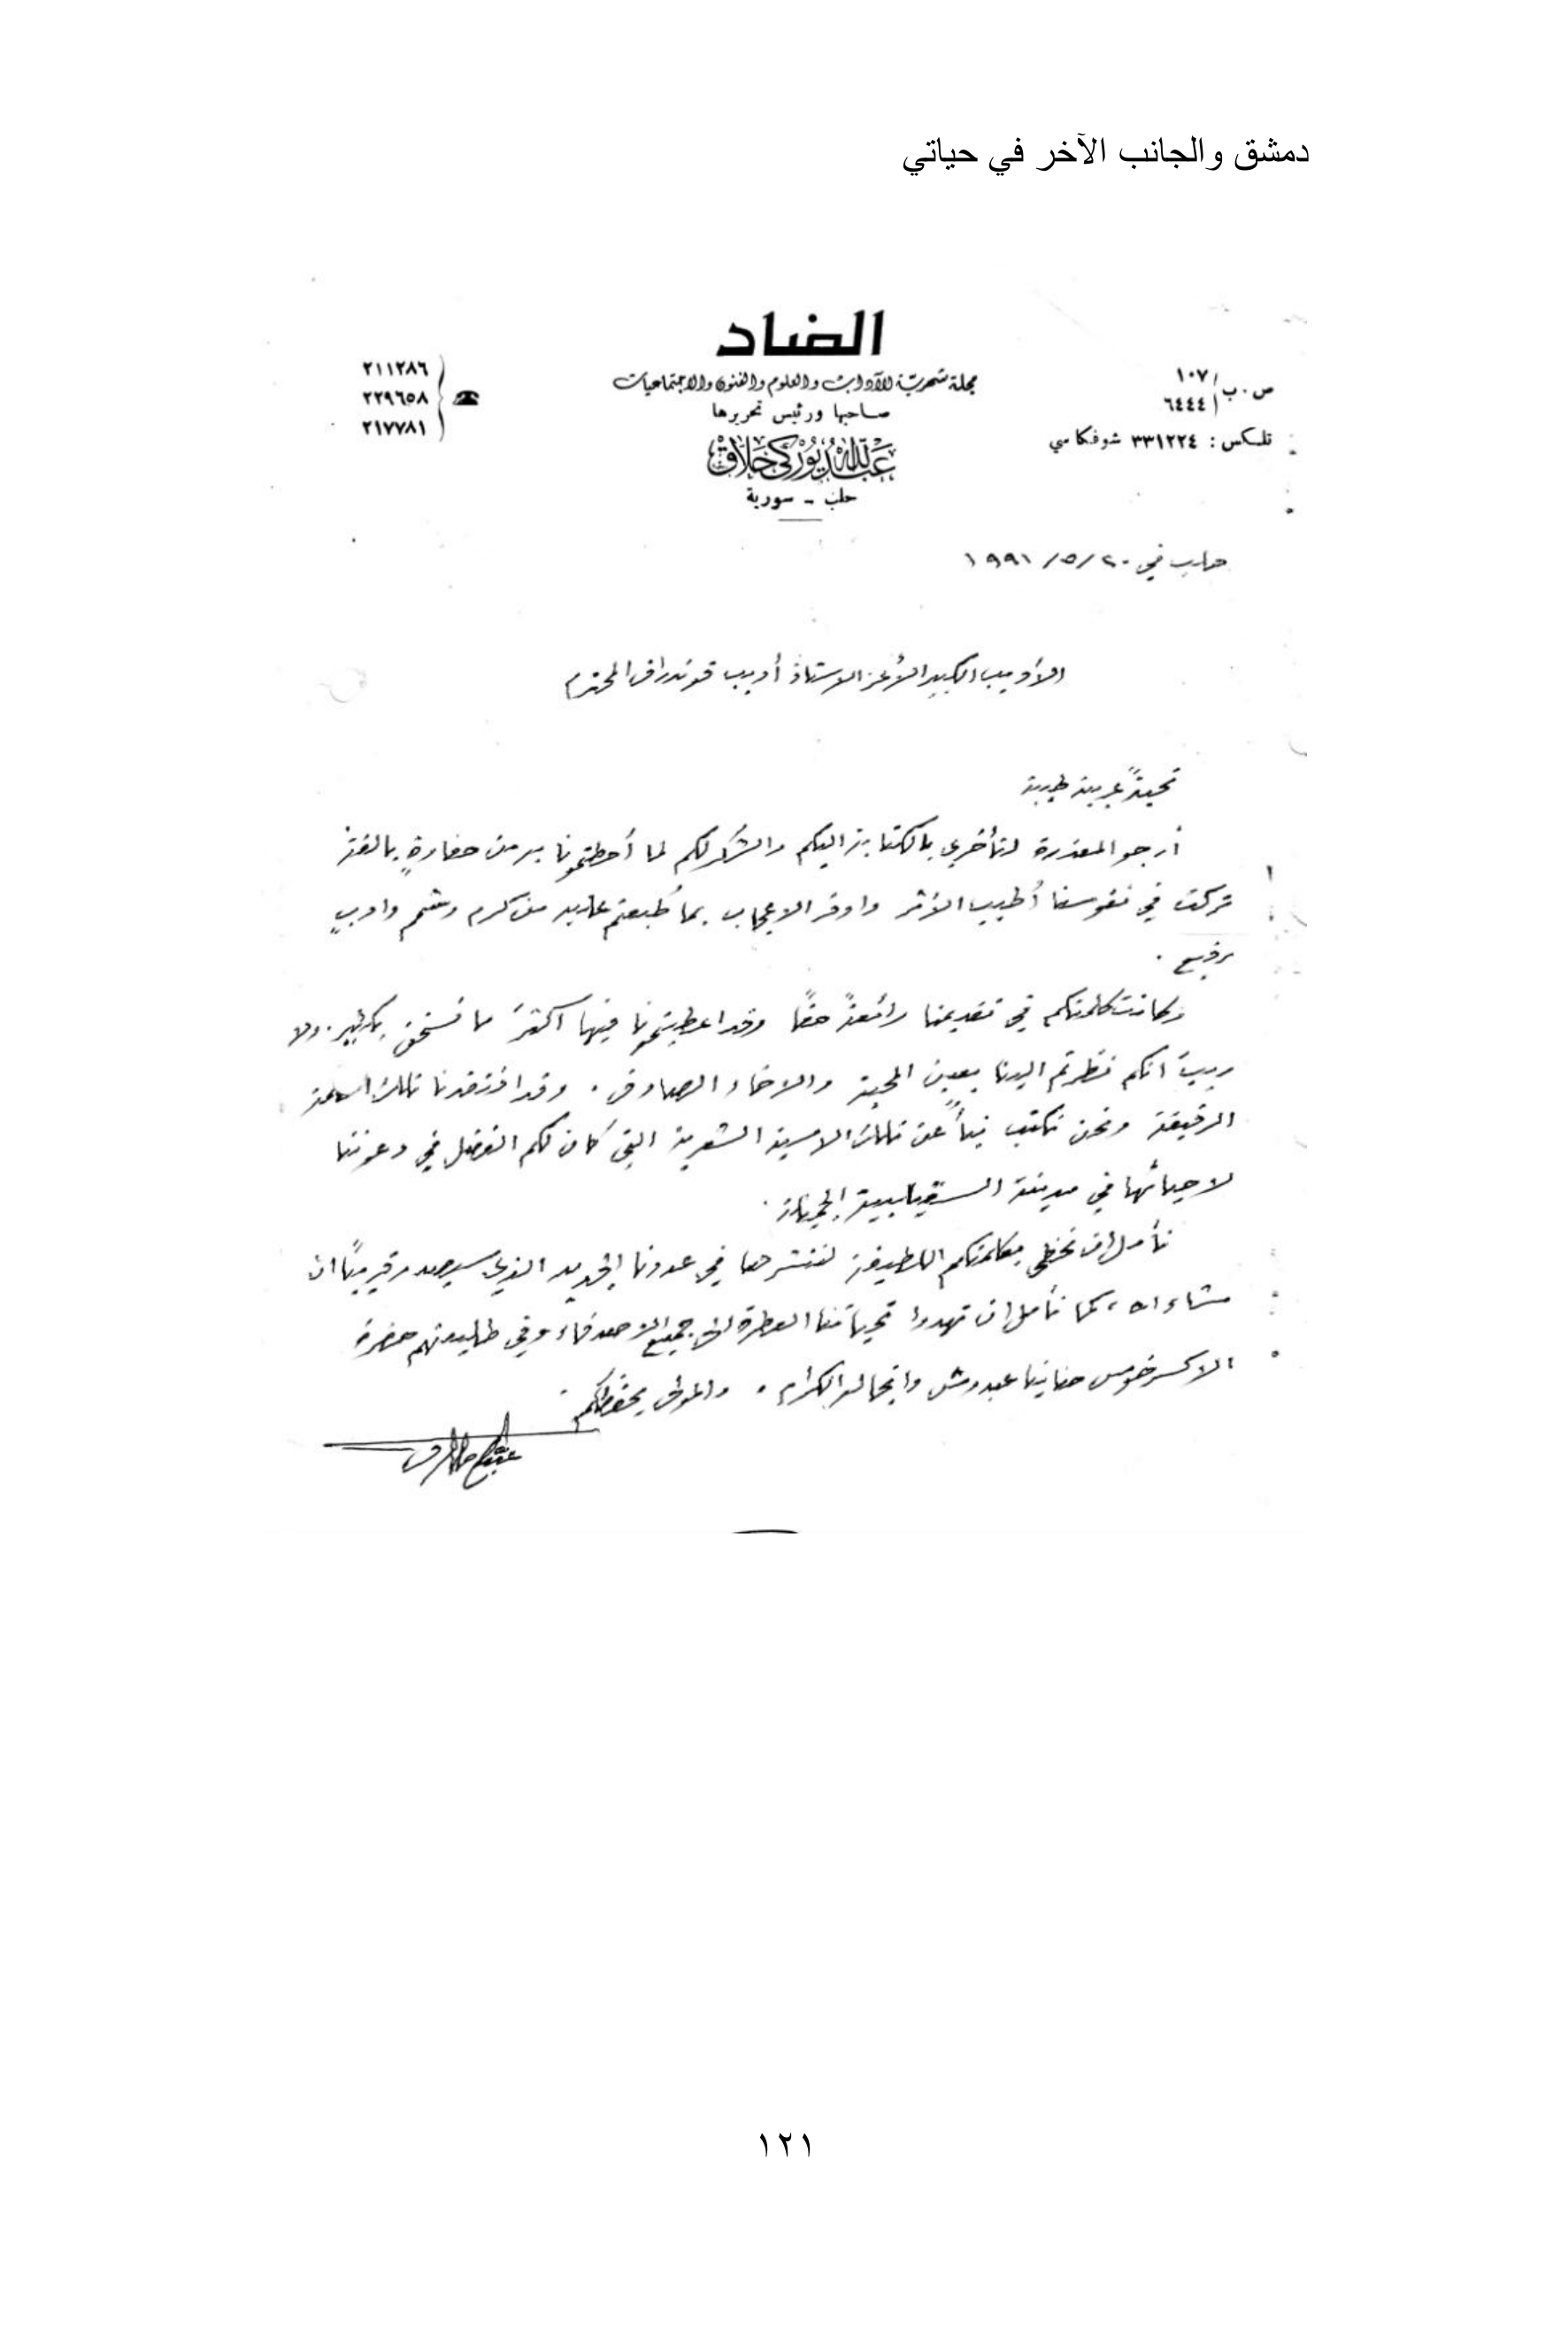 دمشق والجانب الآخر في حياتي
الضاد
مجلة شهرية للآداب والعلوم والفنون والاجتماعيات
صاحبها ورئيس تحريرها
عبد الله يوركي حلاق
حلب - سورية
ص.ب ١٠٧
٦٤٤٤
تلكس : ٣٣١٢٢٤ شوفكا سي
٢١١٢٨٦
٢٢٩٦٥٨
٢١٧٧٨١
حلب في ٢٠/٥/١٩٩١
الأديب الكبير الأعز الاستاذ أديب قوندراق المحترم
تحيةً عربية طيبة
أرجو المعذرة لتأخري بالكتابة اليكم والشكر لكم لما أحطتمونا به من حفاوةٍ بالغة
تركت في نفوسنا أطيب الأثر واوفر الاعجاب بما طبعتم عليه من كرم وشمم وادبٍ
رفيع .
وكانت كلمتكم في تقديمنا رائعةً حقاً وقد اعطيتمونا فيها اكثر ما نستحق بكثير. ولا
ريب انكم نظرتم الينا بعين المحبة والاخاء الصادق . وقد افتقدنا تلك الكلمة
الرقيقة ونحن نكتب نبأً عن تلك الامسية الشعرية التي كان لكم الفضل في دعوتنا
لاحيائها في مدينة السقيلبية الجميلة .
نأمل ان نحظى بكلمتكم اللطيفة لننشرها في عددنا الجديد الذي سيصدر قريباً ان
شاء الله، كما نأمل ان تهدوا تحياتنا العطرة الى جميع الاصدقاء وفي طليعتهم حضرة
الاكسرخوس حنانيا عبدوش وانجاله الكرام . والمولى يحفظكم .
١٢١